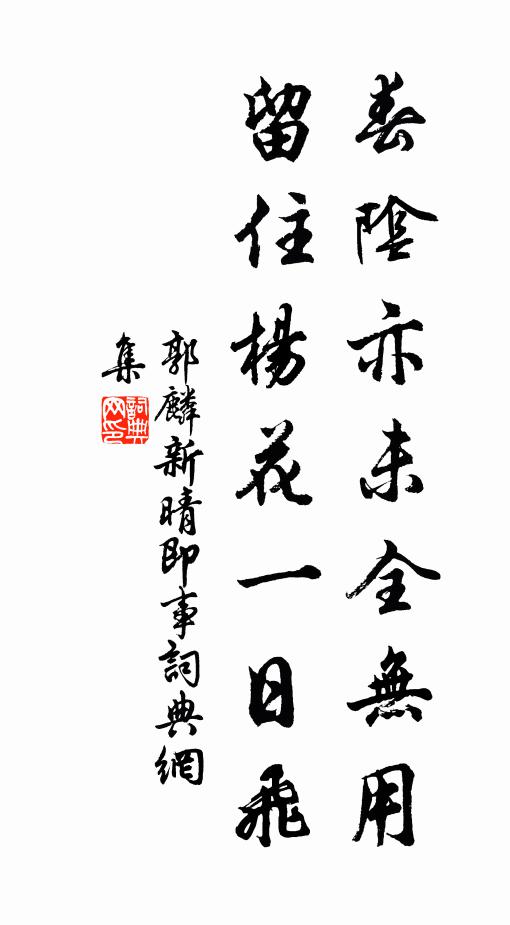 春陰亦未全無用
留住楊花一日飛
郭麟新晴即事詞典網
集
詞典
网印